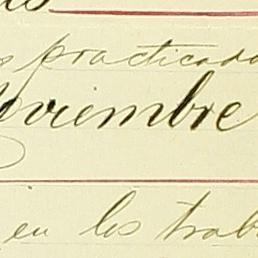 s practicado
oviembre
en los trab